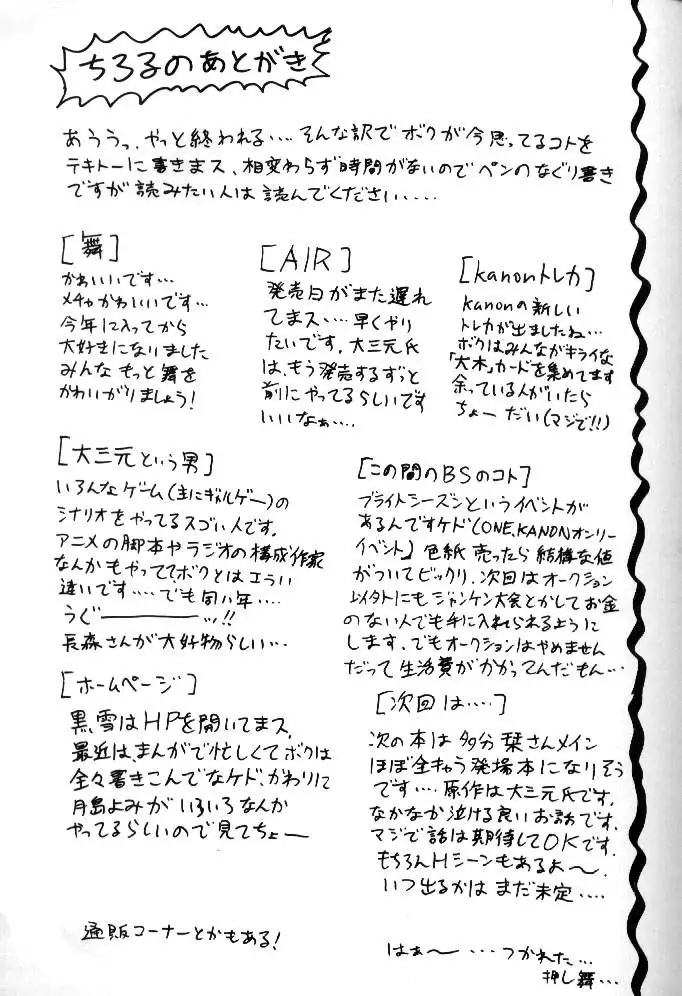 ちろるのあとがき
あううっ、やっと終われる‥‥そんな訳でボクが今思ってるコトを
テキトーに書きまス、相変わらず時間がないのでペンのなぐり書き
ですが読みたい人は読んでください‥‥
[舞]
かわいいです…
メチャかわいいです…
今年に入ってから
大好きになりました
みんなもっと舞を
かわいがりましょう!
[AIR]
発売日がまた遅れ
てまス‥‥早くやり
たいです。大三元氏
は、もう発売するずっと
前にやってるらしいです
いいなぁ‥‥
[kanonトレカ]
kanonの新しい
トレカが出ましたね…
ボクはみんながキライな
「大木」カードを集めてます
余っている人がいたら
ちょーだい(マジで!!)
[大三元という男]
いろんなゲーム(主にギャルゲー)の
シナリオをやってるスゴい人です。
アニメの脚本やラジオの構成作家
なんかもやっててボクとはエラい
違いです‥‥でも同い年‥‥
うぐーーッ!!
長森さんが大好物らしい…
[この間のBSのコト]
ブライトシーズンというイベントが
あるんですケド(ONE、KANONオンリー
イベント)色紙売ったら結構な値
がついてビックリ、次回はオークション
以外にもジャンケン大会とかしてお金
のない人でも手に入れられるように
します。でもオークションはやめません
だって生活費がかかってんだもん…
[ホームページ]
黒雪はHPを開いてまス。
最近は、まんがで忙しくてボクは
全々書きこんでなケド、かわりに
月島よみがいろいろなんか
やってるらしいので見てちょー
[次回は‥‥]
次の本は多分栞さんメイン
ほぼ全キャラ発場本になりそう
です‥‥原作は大三元氏です。
なかなか泣ける良いお話です。
マジで話は期待してOKです。
もちろんHシーンもあるよ〜。
いつ出るかはまだ未定‥‥
通販コーナーとかもある!
はぁ〜…つかれた…
押し舞…